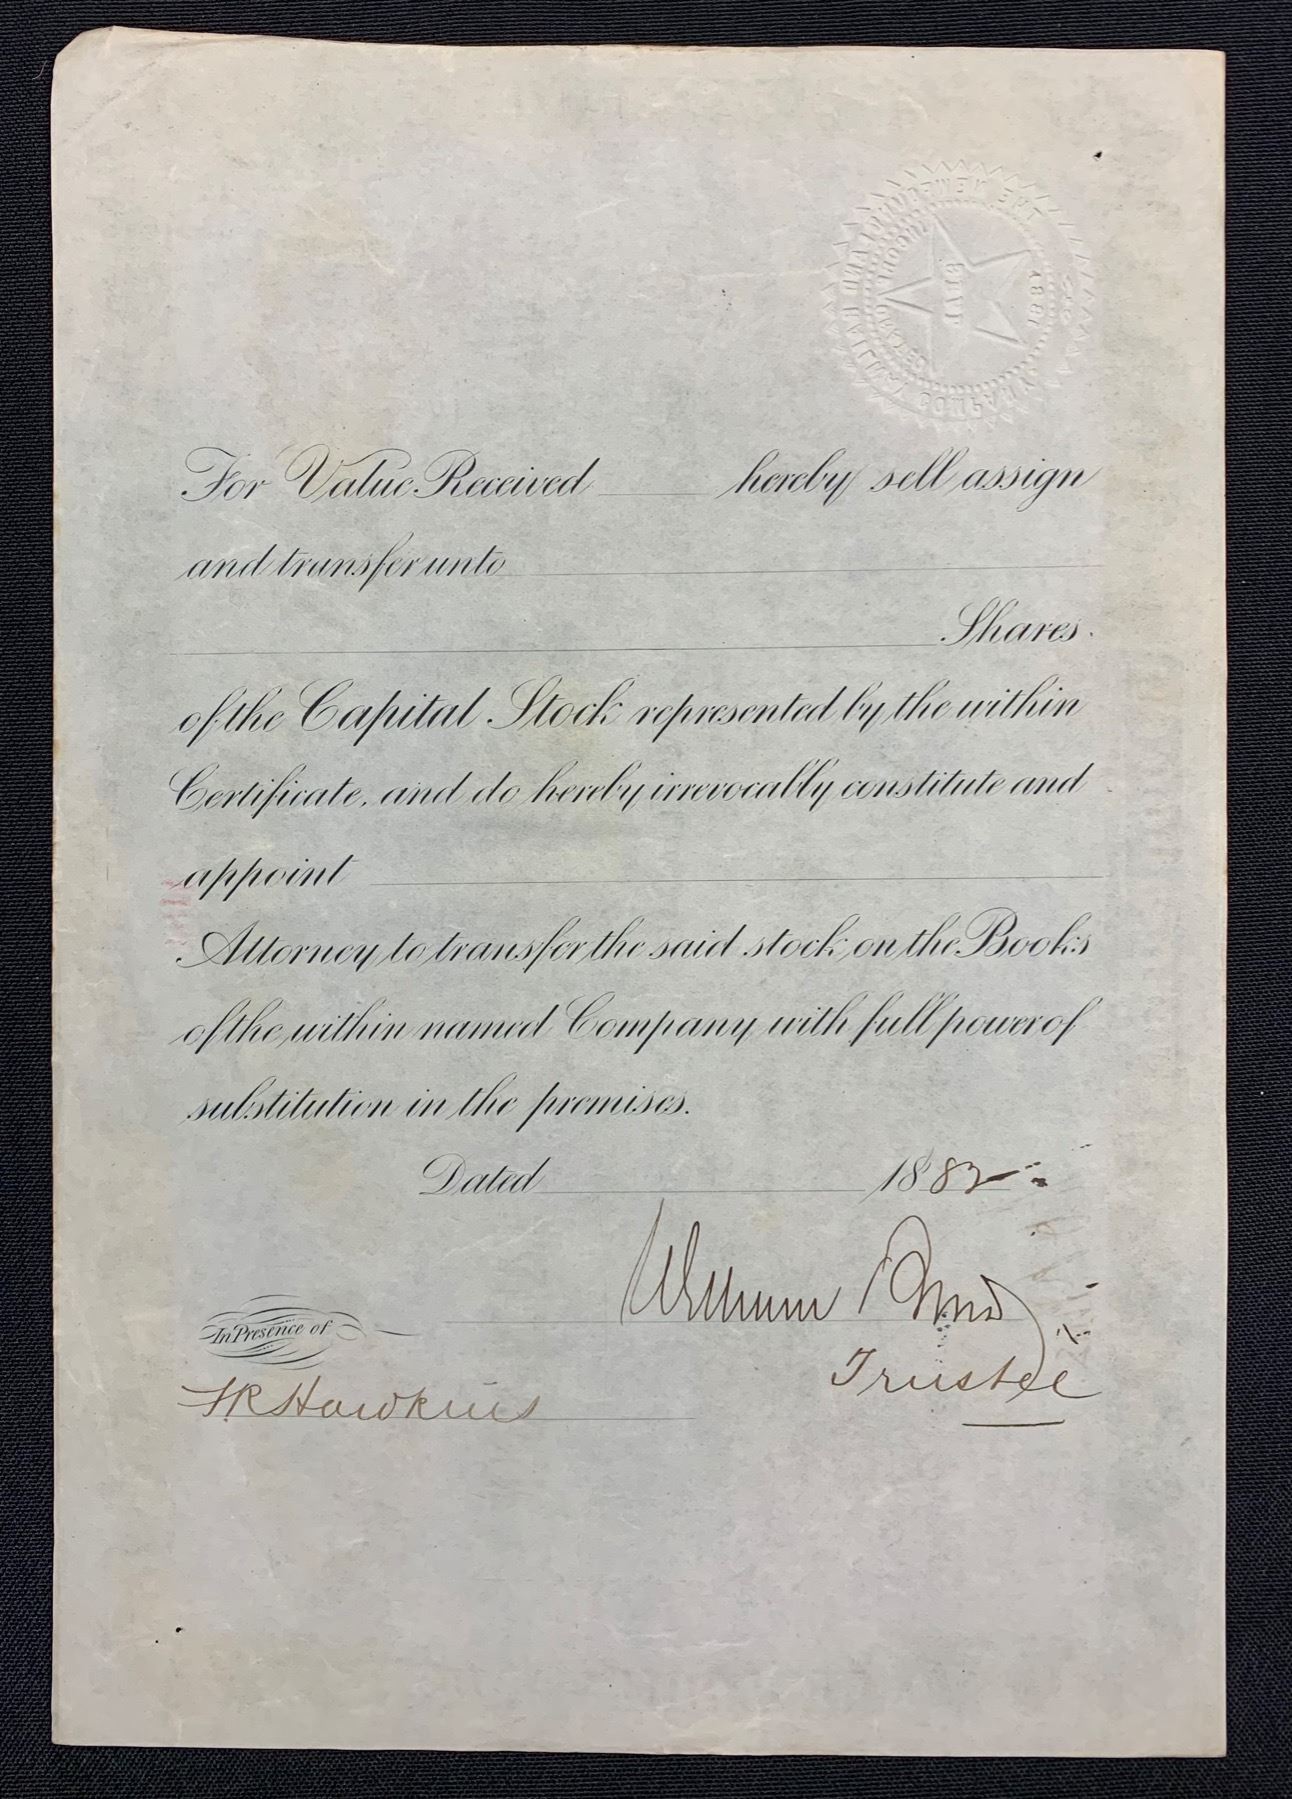 For Value Received hereby sell assign
and transfer unto
Shares.
of the Capital Stock represented by the within
Certificate, and do hereby irrevocably constitute and
appoint
Attorney to transfer the said stock on the Books
of the within named Company with full power of
substitution in the premises.
Dated 1882
William Bond
Trustee
In Presence of
Hawkins